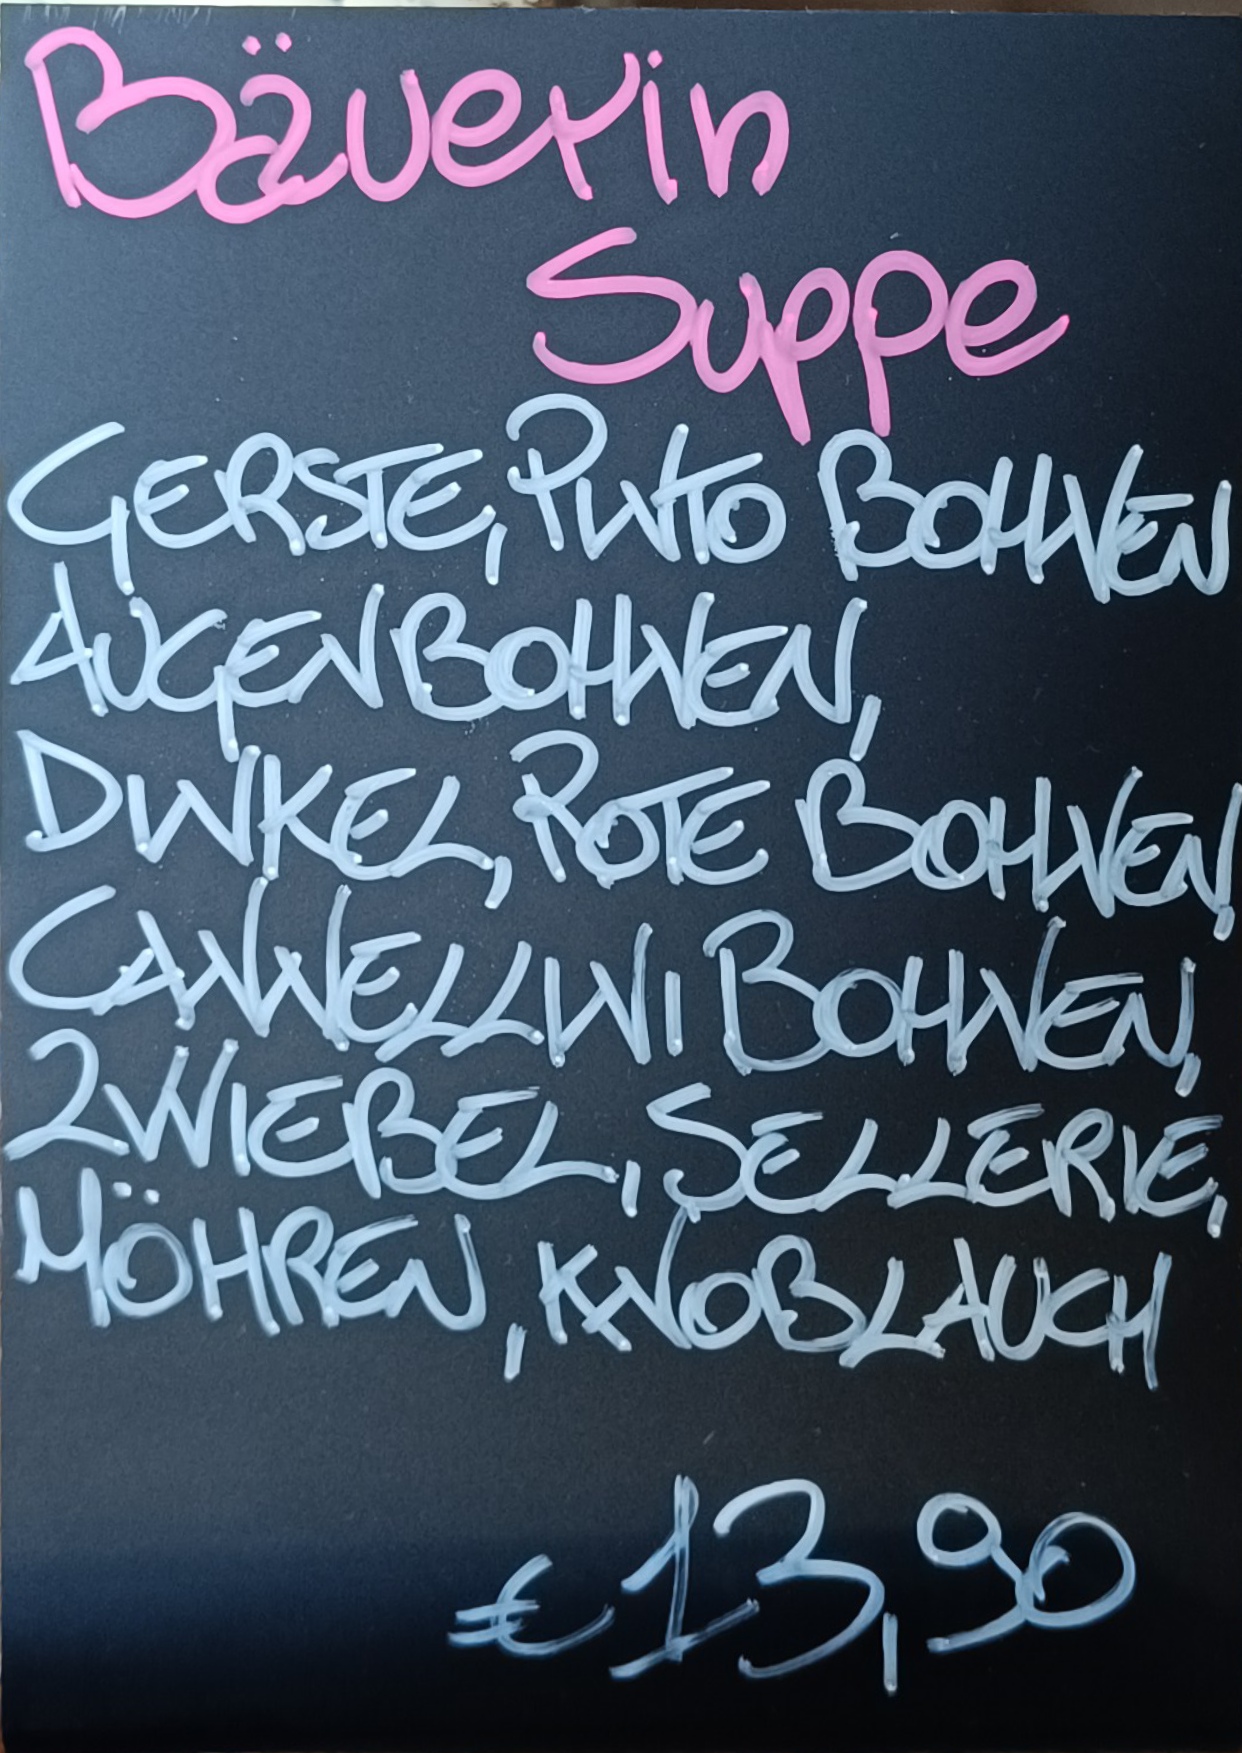 Bäuerin
Suppe
GERSTE, PINTO BOHNEN
AUGENBOHNEN,
DINKEL, ROTE BOHNEN,
CANNELLINI BOHNEN,
ZWIEBEL, SELLERIE,
MÖHREN, KNOBLAUCH
€ 13,90